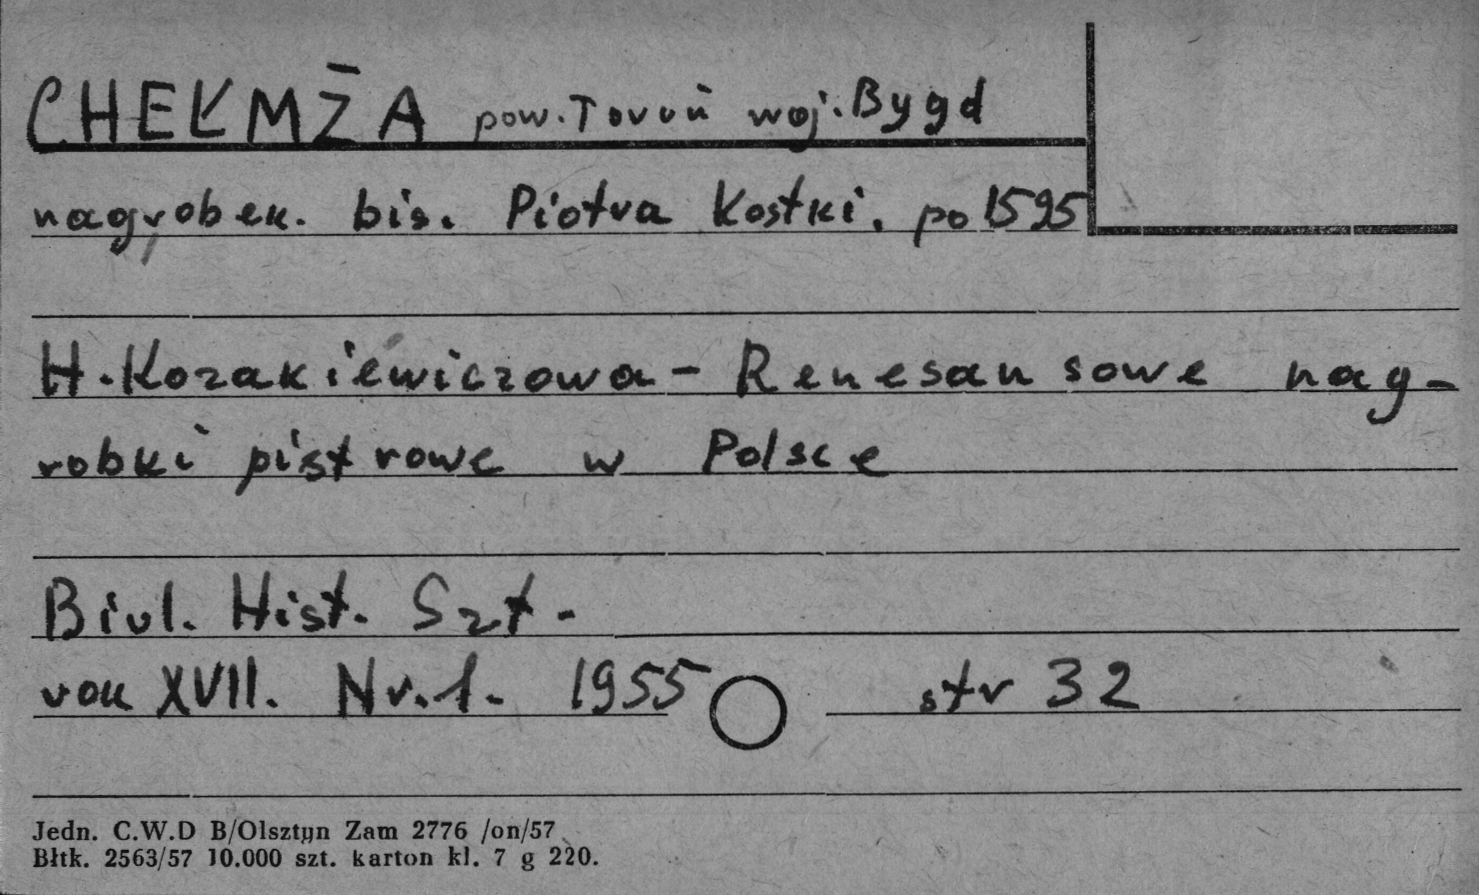 CHEŁMŻA pow. Toruń woj. Bydg
nagrobek. bis. Piotra Kostki. po 1595
H. Kozakiewiczowa - Renesansowe nag-
robki pistrowe w Polsce
Biul. Hist. Szt.
rok XVII. Nr. 1. 1955 str 32
Jedn. C.W.D B/Olsztyn Zam 2776 /on/57
Błtk. 2563/57 10.000 szt. karton kl. 7 g 220.